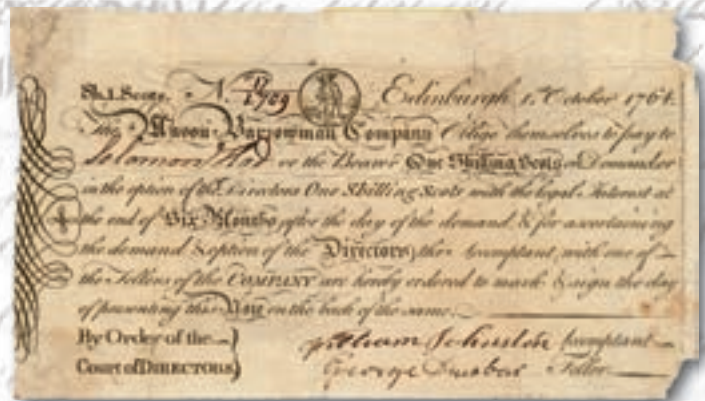 Sh.1.Scots. N. 17/1709 Edinburgh 1st October 1764
The Mason Barrowman Company Oblige themselves to pay to
Solomon or the Bearer One Shilling Scots on Demand or
in the option of the Directors One Shilling Scots with the legal Interest at
the end of Six Months after the day of the demand, & for ascertaining
the demand & option of the Directors, the Accomptant, with one of
the Tellers of the COMPANY are hereby ordered to mark & sign the day
of presenting this Note on the back of the same.
By Order of the William Johnston Accomptant
Court of DIRECTORS George Dunbar Teller